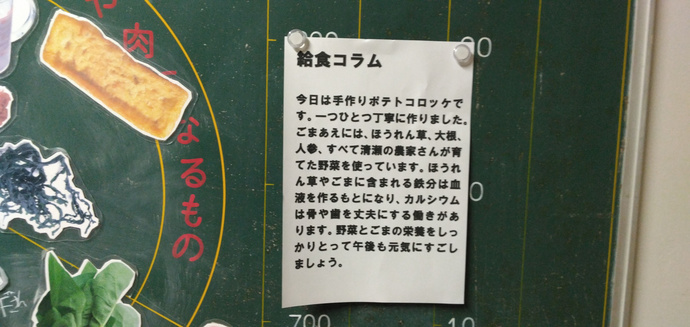 給食コラム
今日は手作りポテトコロッケで
す。一つひとつ丁寧に作りました。
ごまあえには、ほうれん草、大根、
人参、すべて清瀬の農家さんが育
てた野菜を使っています。ほうれ
ん草やごまに含まれる鉄分は血
液を作るもとになり、カルシウム
は骨や歯を丈夫にする働きがあ
ります。野菜とごまの栄養をしっ
かりとって午後も元気にすごし
ましょう。
や肉
なるもの
00
700
10